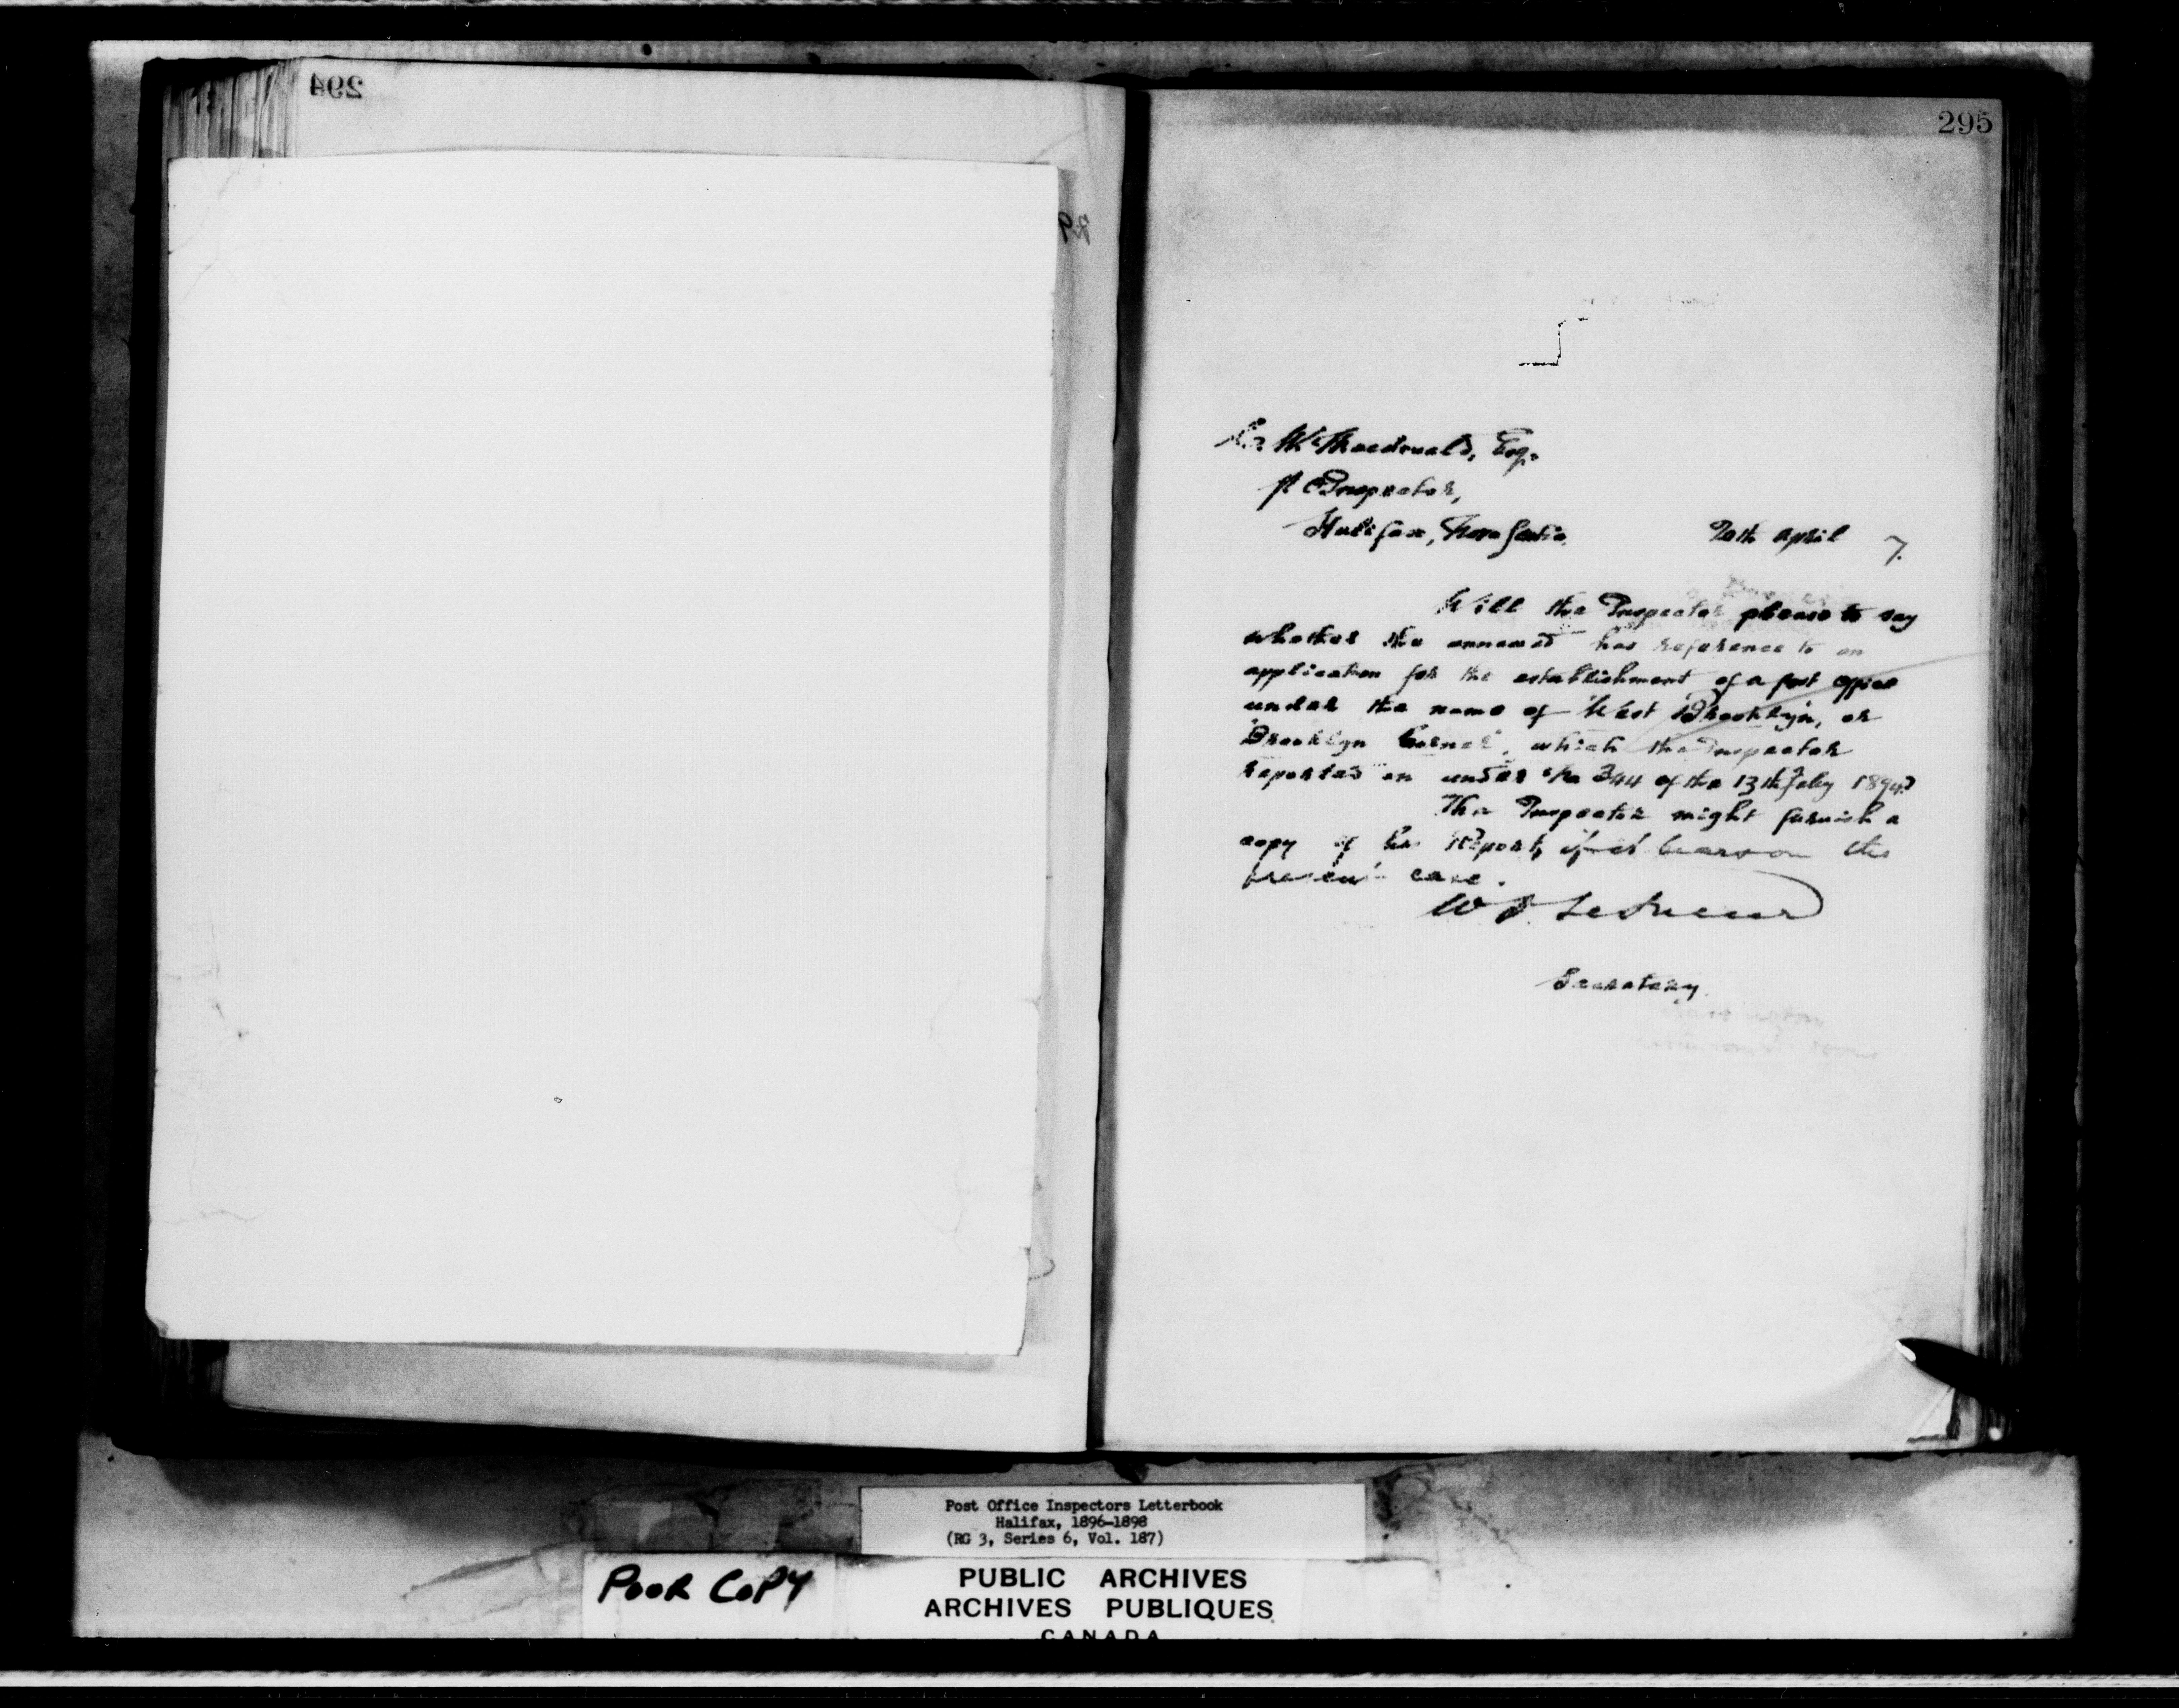 294
295
Macdonald, Esq.
P O Inspector,
Halifax, Nova Scotia
20th April 7.
Will the Inspector please to say
whether the annexed has reference to an
application for the establishment of a post office
under the name of "West Brooklyn, or
Brooklyn Corner", which the Inspector
reported on under No 344 of the 13th Feby 1894?
The Inspector might furnish a
copy of his Report, if it bears on the
present case.
W D LeSueur
Secretary.
Post Office Inspectors Letterbook
Halifax, 1896-1898
(RG 3, Series 6, Vol. 187)
POOR COPY
PUBLIC ARCHIVES
ARCHIVES PUBLIQUES
CANADA